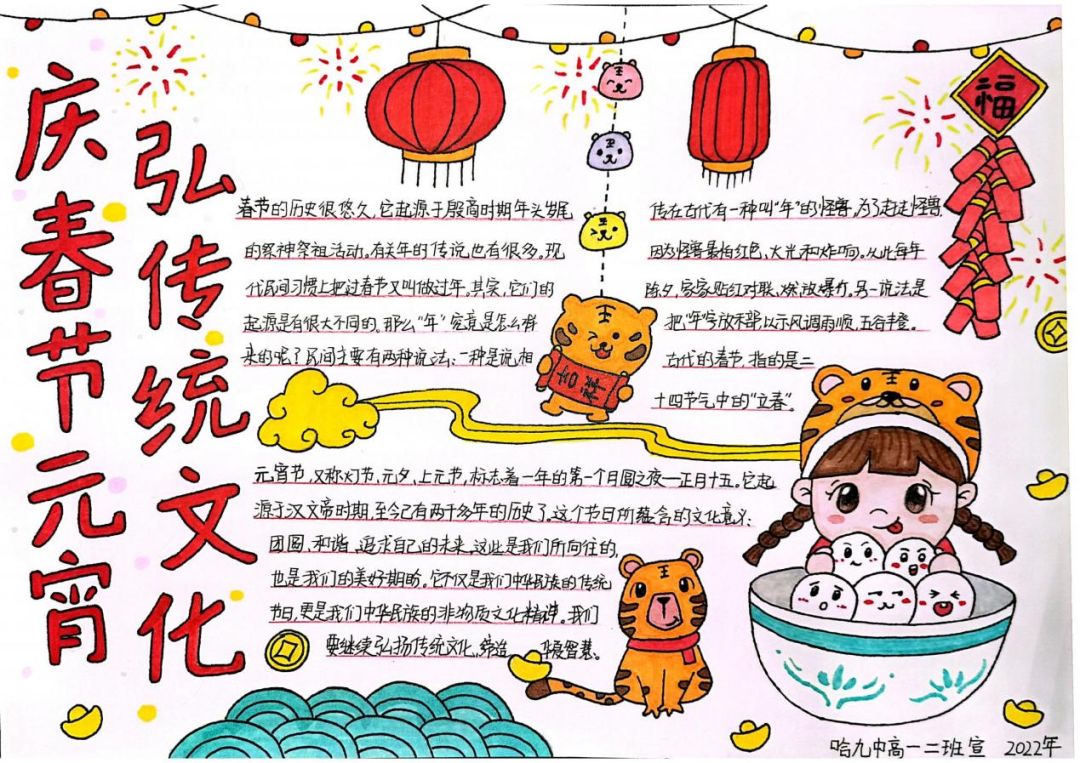 庆春节元宵
弘传统文化
福
春节的历史很悠久,它起源于殷商时期年头岁尾
的祭神祭祖活动。有关年的传说也有很多。现
代民间习惯上把过春节又叫做过年。其实,它们的
起源是有很大不同的。那么“年”究竟是怎么样
来的呢?民间主要有两种说法:一种是说,相
传在古代有一种叫“年”的怪兽,为了赶走怪兽,
因为怪兽最怕红色、火光和炸响。从此每年
除夕,家家贴红对联、燃放爆竹。另一说法是
五谷丰登。
古代的春节,指的是二
十四节气中的“立春”。
吉祥
元宵节,又称灯节、元夕、上元节,标志着一年的第一个月圆之夜—正月十五。它起
源于汉文帝时期,至今已有两千多年的历史了。这个节日所蕴含的文化意义:
团圆、和谐、追求自己的未来,这些是我们所向往的,
也是我们的美好期盼。它不仅是我们中华民族的传统
节日,更是我们中华民族的非物质文化精神。我们
要继续弘扬传统文化,缔造 华夏智慧。
哈九中高一二班宣 2022年